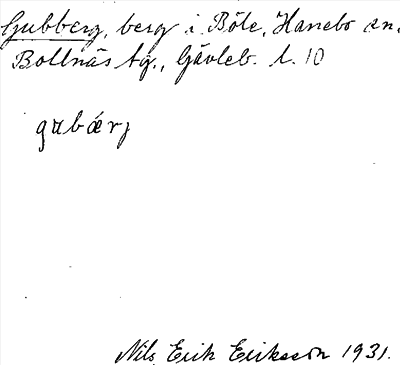 Gubberg, berg i Böle, Hanebo sn.
Bollnäs tg., Gävleb. l. 10
gubǽrj
Nils Erik Eriksson 1931.